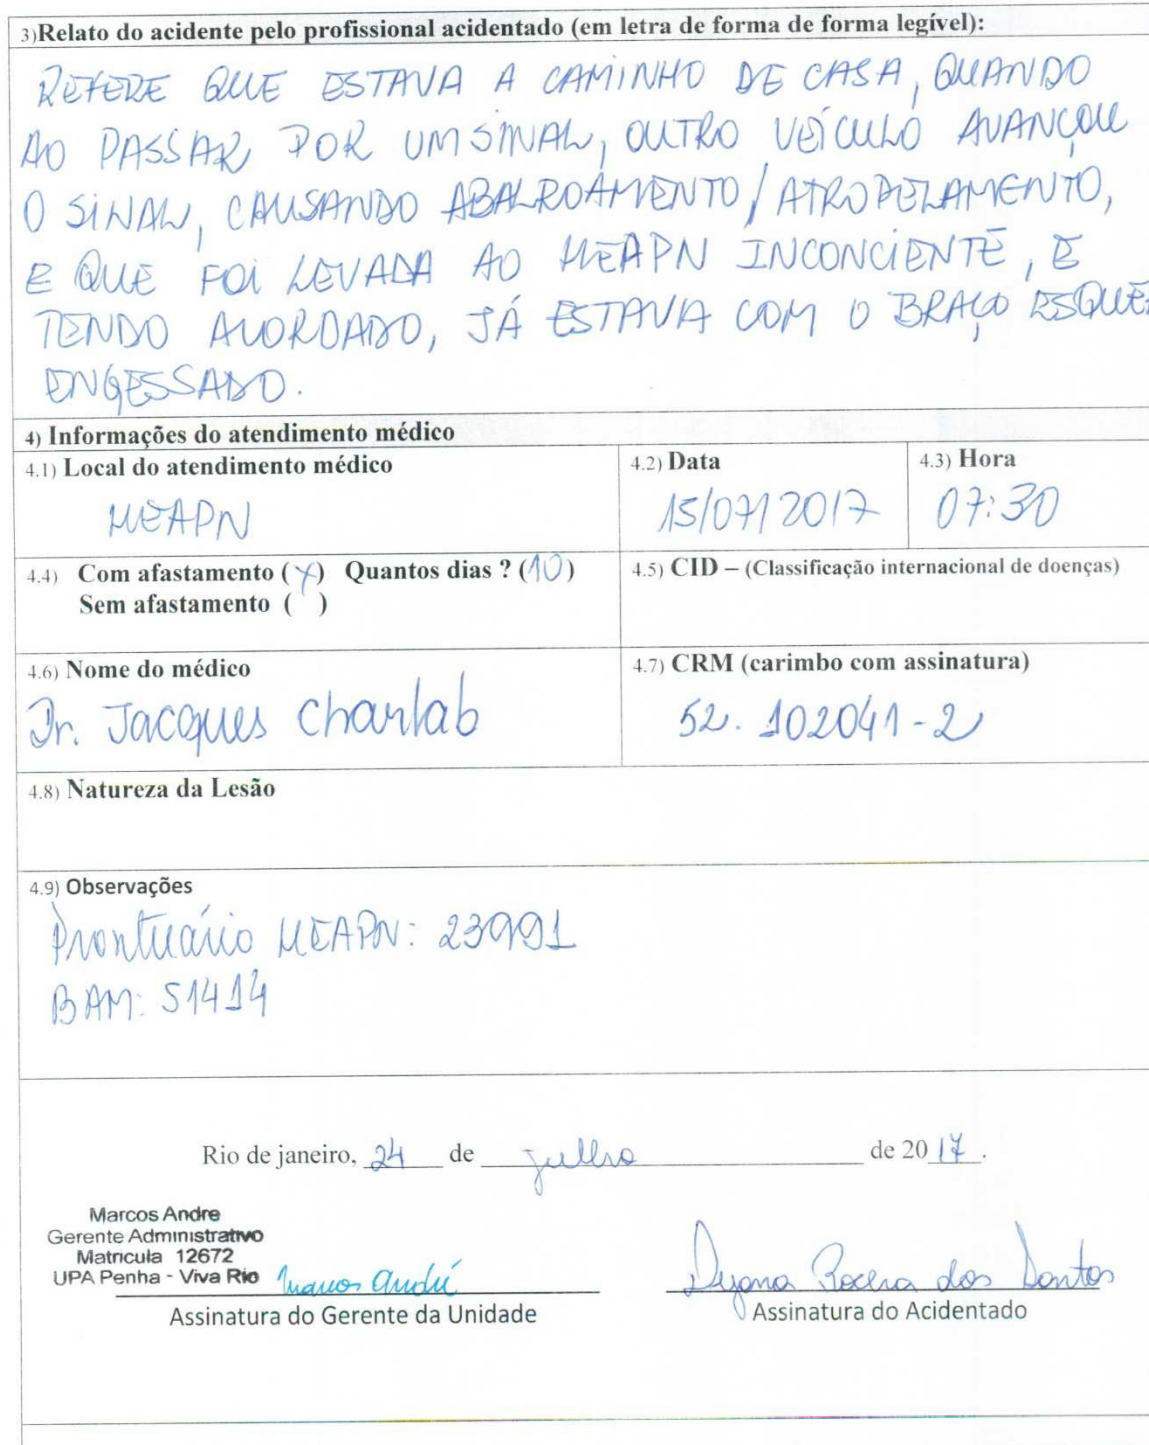 3)Relato do acidente pelo profissional acidentado (em letra de forma de forma legível):
REFERE QUE ESTAVA A CAMINHO DE CASA, QUANDO
AO PASSAR POR UM SINAL, OUTRO VEÍCULO AVANÇOU
O SINAL, CAUSANDO ABALROAMENTO/ATROPELAMENTO,
E QUE FOI LEVADA AO HEAPN INCONCIENTE, E
TENDO ACORDADO, JÁ ESTAVA COM O BRAÇO ESQUE
ENGESSADO.
4) Informações do atendimento médico
4.1) Local do atendimento médico 4.2) Data 4.3) Hora
HEAPN 15/07/2017 07:30
4.4) Com afastamento (X) Quantos dias ? (10) 4.5) CID – (Classificação internacional de doenças)
Sem afastamento ( )
4.6) Nome do médico 4.7) CRM (carimbo com assinatura)
Dr. Jacques Charlab 52.102041-2
4.8) Natureza da Lesão
4.9) Observações
Prontuário HEAPN: 23991
BAM: 51414
Rio de janeiro, 24 de julho de 2017.
Marcos Andre
Gerente Administrativo
Matricula 12672
UPA Penha - Viva Rio Marcos André dos Santos
Assinatura do Gerente da Unidade Assinatura do Acidentado